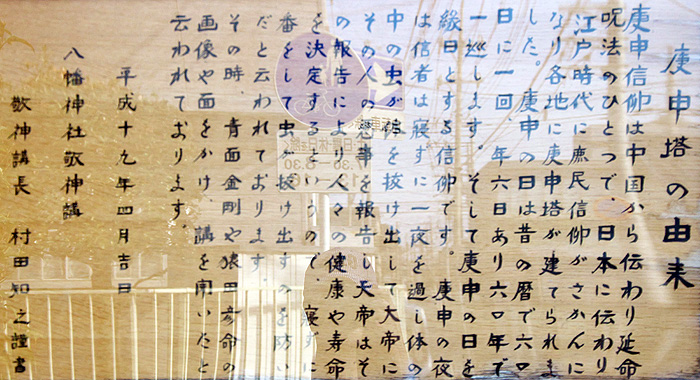 庚申塔の由来
庚申信仰は中国から伝わり延命
呪法のひとつで、日本に伝わり
江戸時代に庶民信仰がさかんに
なり各地に庚申塔が建てられま
した。庚申の日は昔の暦で六〇
日に一回、年六日あり六〇年で
一巡します。そして庚申の日を
縁日とする信仰です。庚申の夜
は信者は寝ずに一夜を過し体の
中の虫が を抜け出して大帝に
その人の悪事を報告し、天帝はそ
の報告により人々の健康や寿命
を決定するというので、寝ずに
番をして虫が抜け出すのを防い
だと云われております。
その時、青面金剛や猿田彦命の
画像や面をかけ、講を開いたと
云われております。
平成十九年四月吉日
八幡神社敬神講
敬神講長 村田知之謹書